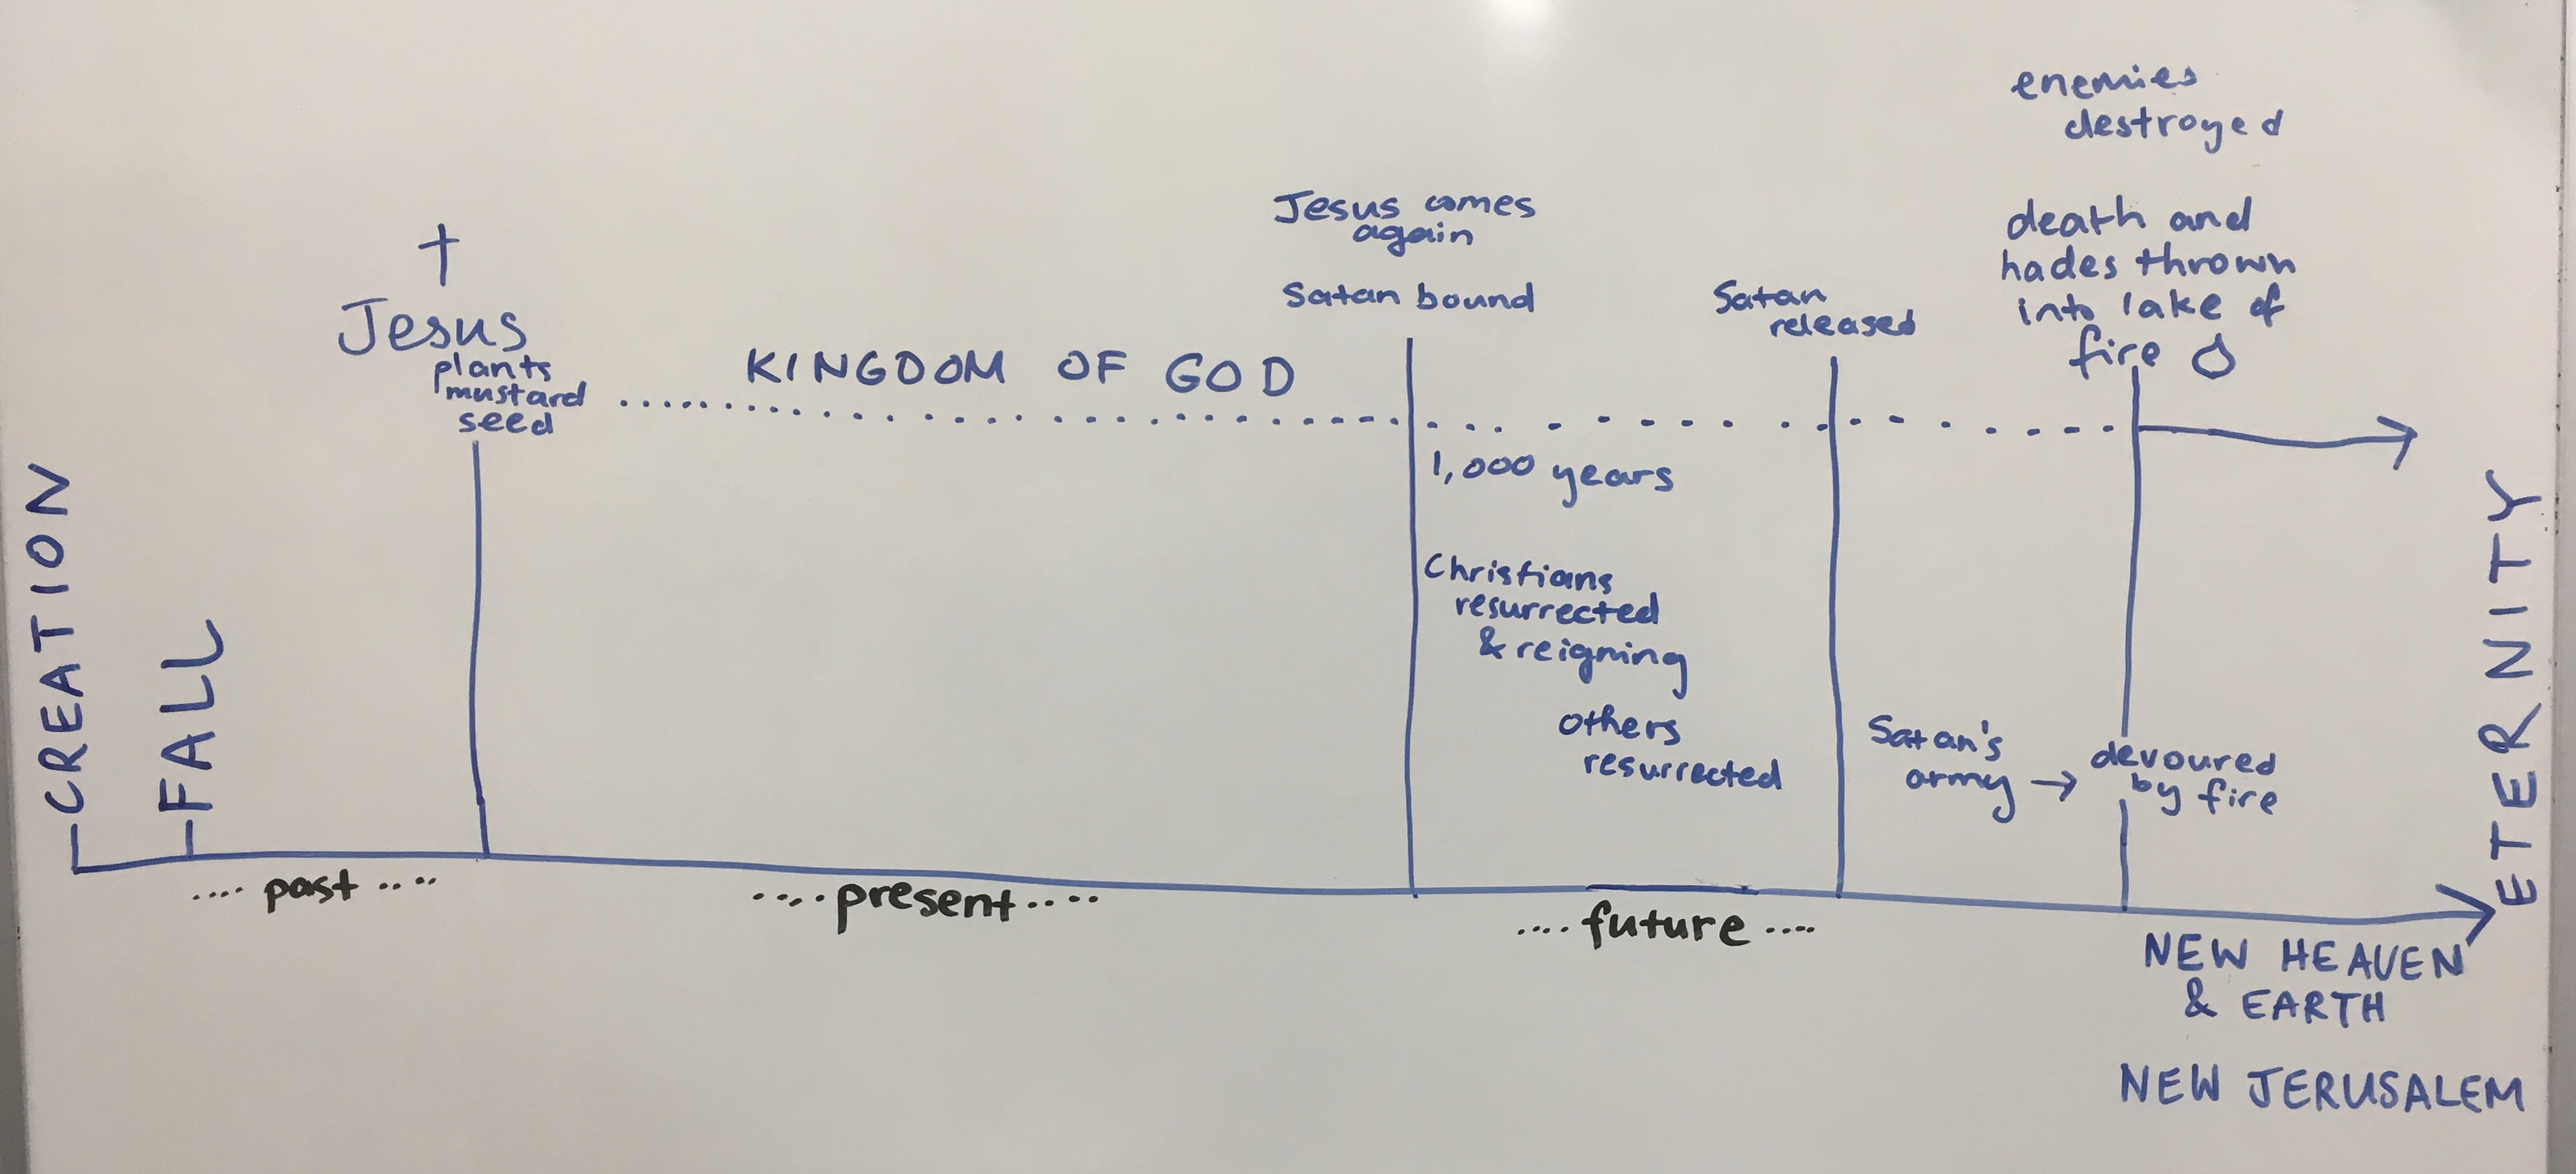 CREATION
FALL
Jesus
plants
mustard
seed
KINGDOM OF GOD
Jesus comes
again
Satan bound
1,000 years
Christians
resurrected
& reigning
others
resurrected
Satan
released
Satan's
army →
devoured
by fire
enemies
destroyed
death and
hades thrown
into lake of
fire
ETERNITY
.... past ....
.... present ....
.... future ....
NEW HEAVEN
& EARTH
NEW JERUSALEM